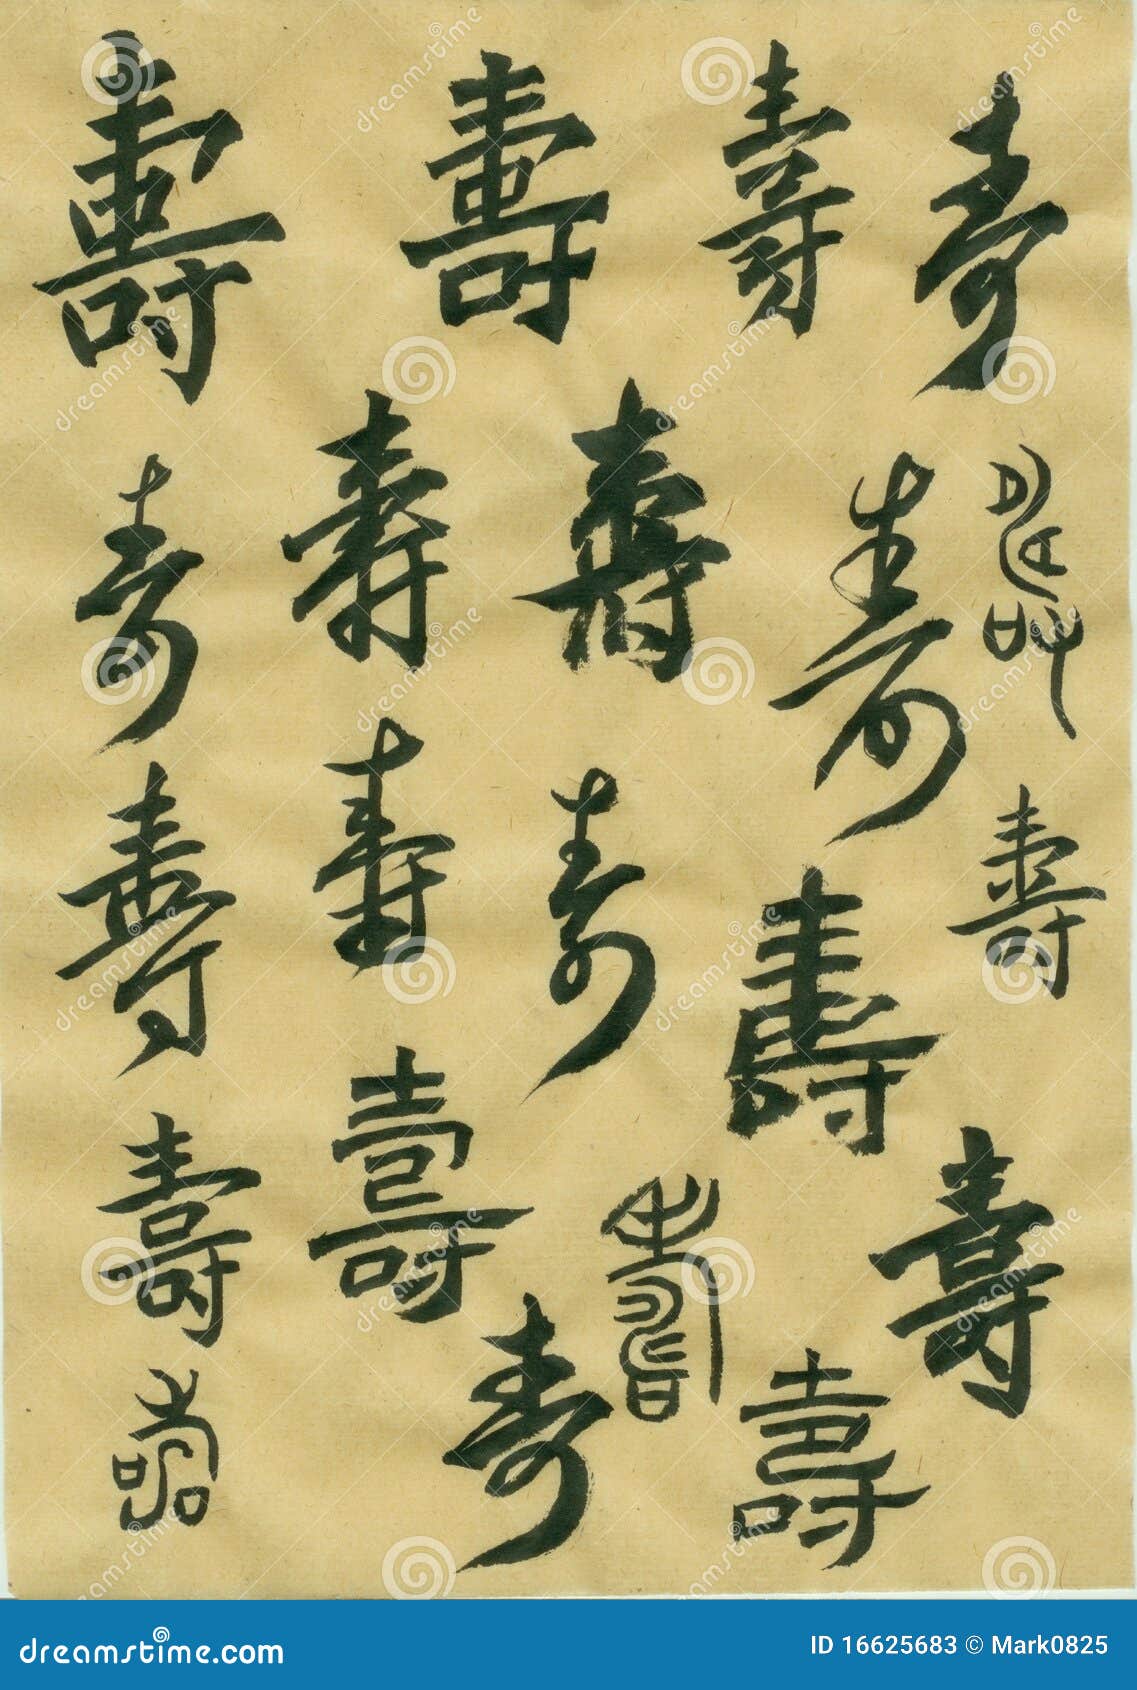 壽 壽 壽 壽
壽 壽 壽 壽 壽
壽 壽 壽 壽 壽
壽 壽 壽 壽
壽 壽 壽
dreamstime.com
ID 16625683 © Mark0825